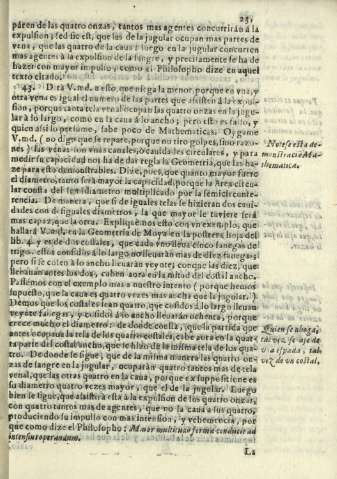 25,
paren de las quatro onzas, tantos mas agentes concurriràn à la
expulsion; sed sic est, que las de la jugular ocupan mas partes de
vena, que las quatro de la caua: luego en la jugular concurren
mas agentes à la expulsion de la sangre, y precisamente se ha de
hazer con mayor impulso, como el Philosopho dize en aquel
texto citado.
43. Dirà V.md. à esto, que niega la menor, porque en vna, y
otra vena es igual el numero de las partes que assisten à la expul-
sion, porque tanta tela vendrà ocupan las quatro onzas en la jugu-
lar à lo largo, como en la caua à lo ancho; pero esto es falso, y
quien assi lo presume, sabe poco de Mathematicas. Oygame
V.md. (no digo que se repare, porque no tiro golpes, sino razo-
nes) las venas son vnas canales, ò caudales circulares, y para
medir su capacidad nos ha de dar regla la Geometria, que las ha-
ze para esto demonstrables. Dize, pues, que quanto mayor fuere
el diametro, tanto serà mayor la capacidad, porque la Area circu-
lar consta del semidiametro multiplicado por la semicircunfe-
rencia. De manera, que si de iguales telas se hizieran dos conti-
dades con desiguales diametros, la que mayor le tuviere serà
mas capaz, que la otra. Expliquemos esto con vn exemplo, que
hallarà V.md. en la Geometria de Moya en la postrera hoja del
lib. 4. y es de dos costales, que cada vno lleua cinco fanegas de
trigo. estos cosidos à lo largo no lleuaràn mas de diez fanegas;
pero si se cosen à lo ancho lleuaràn veynte, con que las diez, que
lleuauan antes los dos, caben aora en la mitad del costal ancho.
Passemos con el exemplo mas a nuestro intento (porque hemos
supuesto, que la caua es quatro vezes mas ancha que la jugular.)
Demos que los costales sean quatro, que cosidos à lo largo lleuan
veynte fanegas, y cosidos à lo ancho lleuaràn ochenta, porque
crece mucho el diametro: de donde consta, que la partida que
antes ocupaua la tela de los quatro costales, cabe aora en la quar-
ta parte del costal ancho, que es solo de la misma tela de los qua-
tro. De donde se sigue, que de la misma manera las quatro on-
zas de sangre en la jugular, ocuparàn quatro tantos mas de tela
venal, que las otras quatro en la caua, porque ex suppositione es
su diametro quatro vezes mayor, que el de la jugular. Luego
bien se sigue, que assistirà esta à la expulsion de los quatro onzas,
con quatro tantos mas de agentes, que no la caua à sus quatro,
produciendo su impulso con mas intension, y vehemencia, por
que como dize el Philosopho: Maior multitudo formæ conducit ad
intensius operandum.
La
Notese esta de-
monstracion Ma-
thematica.
Quien se ahoga,
tal vez, se ase de
vna espada, tal
vez de vn costal.